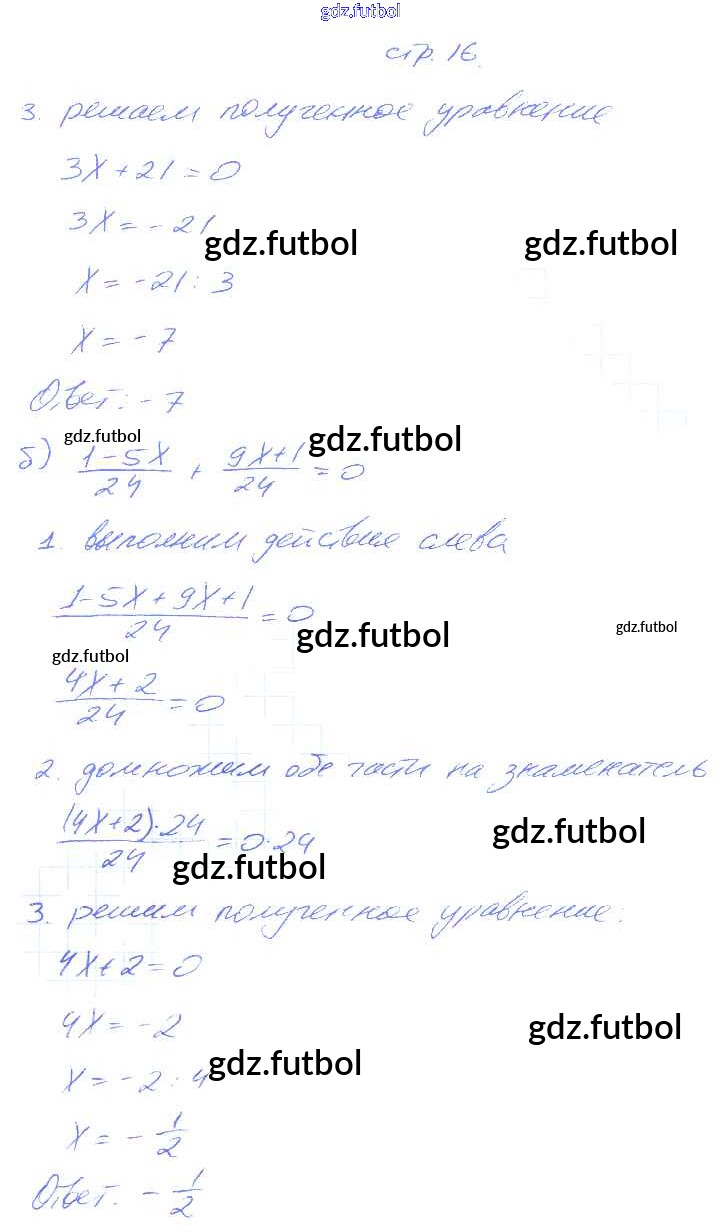 gdz.futbol
стр. 16.
3. решаем полученное уравнение
3x + 21 = 0
3x = - 21
gdz.futbol gdz.futbol
x = -21 : 3
x = - 7
Ответ: - 7
gdz.futbol gdz.futbol
б) (1-5x)/24 + (9x+1)/24 = 0
1. выполним действие слева
(1-5x+9x+1)/24 = 0
gdz.futbol gdz.futbol
gdz.futbol
(4x+2)/24 = 0
2. домножим обе части на знаменатель
((4x+2)·24)/24 = 0·24
gdz.futbol gdz.futbol
3. решим полученное уравнение:
4x+2=0
4x = -2
gdz.futbol
x = -2 : 4
gdz.futbol
x = - 1/2
Ответ. - 1/2